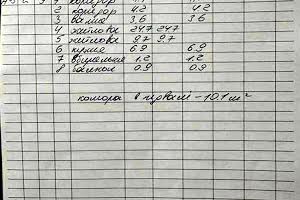 2 коридор 4.2 4.2
3 ванна 3.6 3.6
4 житлова 24.7 24.7
5 житлова 9.7 9.7
6 кухня 6.9 6.9
7 вбиральня 1.2 1.2
8 балкон 0.9 0.9
комора в підвалі - 10.1 м²